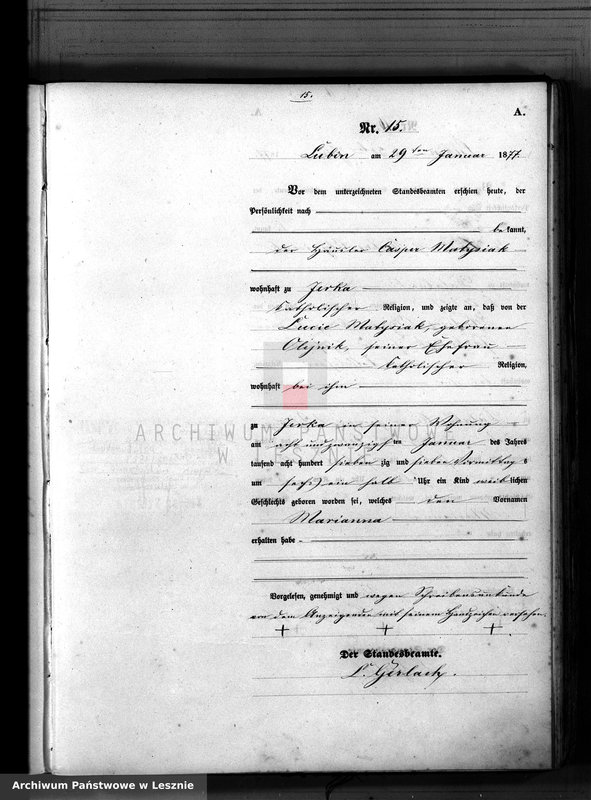 15.
A.
Nr. 15.
Lubin am 29ten Januar 1877
Vor dem unterzeichneten Standesbeamten erschien heute, der
Persönlichkeit nach
bekannt,
der Häusler Casper Matysiak
wohnhaft zu Jerka
katholischer Religion, und zeigte an, daß von der
Lucie Matysiak, geborenen
Olejnik, seiner Ehefrau
katholischer Religion,
wohnhaft bei ihm
zu Jerka in seiner Wohnung
am acht und zwanzigsten Januar des Jahres
tausend acht hundert siebenzig und sieben Vormittags
um sechs ein halb Uhr ein Kind weiblichen
Geschlechts geboren worden sei, welches den Vornamen
Marianna
erhalten habe
Vorgelesen, genehmigt und wegen Schreibensunkunde
von dem Anzeigenden mit seinem Handzeichen versehen.
+ + +
Der Standesbeamte.
Gerlach.
ARCHIWUM PAŃSTWOWE
W LESZNIE
Archiwum Państwowe w Lesznie